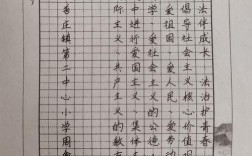 法伴成长 法治护青春
倡导社会主义核心价值观
爱祖国 爱人民 爱劳动
学 爱社会主义的公德
中进行爱国主义 集体主
际主义、共产主义的教育
庄镇第二中心小学周